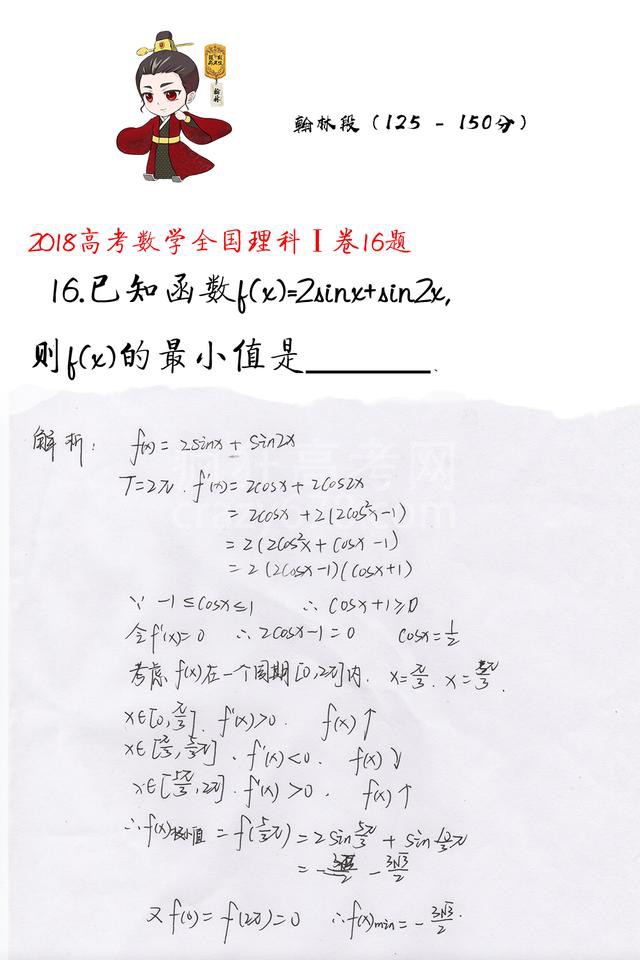 翰林
翰林段(125 - 150分)
2018高考数学全国理科Ⅰ卷16题
16.已知函数f(x)=2sinx+sin2x,
则f(x)的最小值是________.
解析: f(x)=2sinx+sin2x
T=2π. f'(x)=2cosx+2cos2x
=2cosx+2(2cos²x-1)
=2(2cos²x+cosx-1)
=2(2cosx-1)(cosx+1)
∵ -1≤cosx≤1 ∴ cosx+1≥0
令f'(x)=0 ∴2cosx-1=0 cosx=1/2
考虑f(x)在一个周期[0,2π]内. x=π/3. x=5π/3.
x∈[0,π/3]. f'(x)>0. f(x)↑
x∈[π/3,5/3π]. f'(x)<0. f(x)↓
x∈[5π/3,2π]. f'(x)>0. f(x)↑
∴f(x)极小值=f(5/3π)=2sin5π/3+sin10/3π
=- -3√3/2
又f(0)=f(2π)=0 ∴f(x)min=-3√3/2.